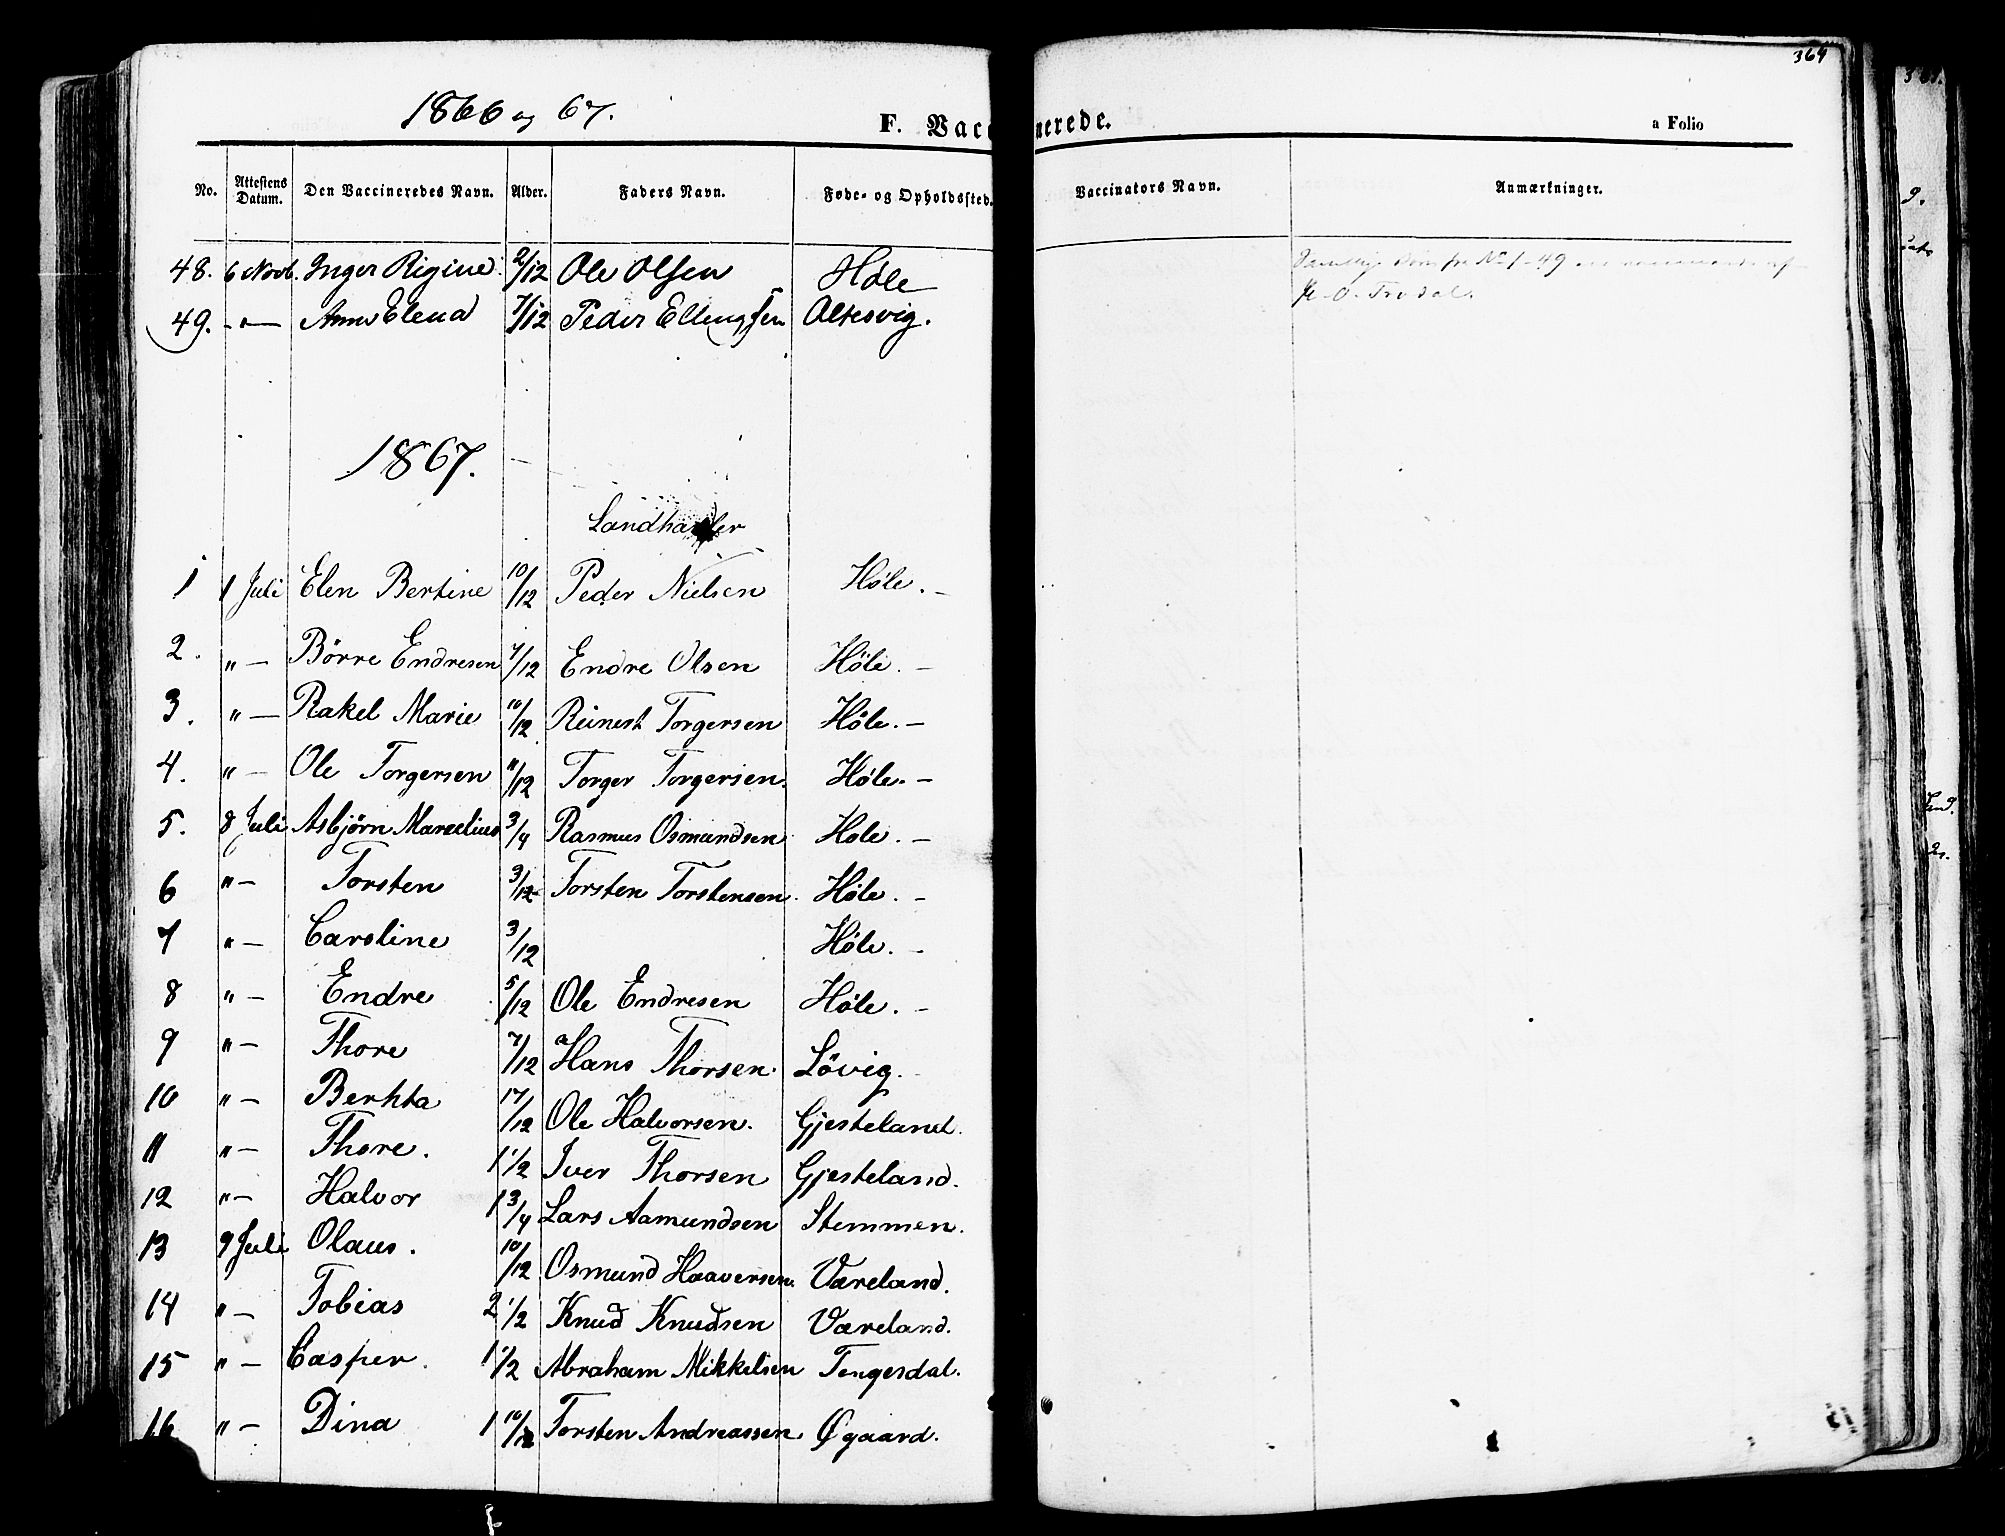 364
1866 og 67.
F. Vaccinerede.
a Folio
No. Attestens Datum. Den Vaccineredes Navn. Alder. Faders Navn. Føde- og Opholdssted. Vaccinators Navn. Anmærkninger.
48. 6 Novb. Inger Rigine 2/12 Ole Olsen Høle
49. - " - Anne Elena 7/12 Peder Ellingsen Oltesvig.
fra No 1-49 af
O. Frodal.
1867.
Landhandler
1 1 Juli Elen Bertine 10/12 Peder Nielsen Høle. -
2. " - Børre Endresen 7/12 Endre Olsen Høle. -
3. " - Rakel Marie 10/12 Reinert Torgersen Høle. -
4. " - Ole Torgersen 11/12 Torger Torgersen. Høle. -
5. 8 Juli Asbjørn Marselius 3/4 Rasmus Osmundsen Høle. -
6 " - Torsten 3/12 Torsten Torstensen. Høle. -
7 " - Caroline 3/12 Høle. -
8 " - Endre 5/12 Ole Endresen Høle. -
9 " - Thore 7/12 Hans Thorsen. Lövig.
10 " - Berhta 17/12 Ole Halvorsen. Gjesteland.
11 " - Thore. 1 1/2 Iver Thorsen Gjesteland.
12 " - Halvor 1 3/4 Lars Aamundsen Stemmen.
13 9 Juli Olaus. 10/12 Osmund Haaversen. Væreland.
14 " - Tobias 2 1/2 Knud Knudsen Væreland.
15 " - Casper. 1 1/2 Abraham Mikkelsen Tengesdal.
16 " - Dina 1 10/12 Torsten Andreassen Øgaard.